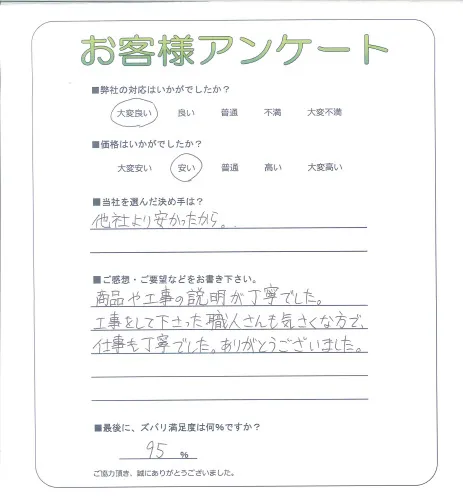 お客様アンケート
■弊社の対応はいかがでしたか？
大変良い 良い 普通 不満 大変不満
■価格はいかがでしたか？
大変安い 安い 普通 高い 大変高い
■当社を選んだ決め手は？
他社より安かったから。
■ご感想・ご要望などをお書き下さい。
商品や工事の説明が丁寧でした。
工事をして下さった職人さんも気さくな方で、
仕事も丁寧でした。ありがとうございました。
■最後に、ズバリ満足度は何％ですか？
95 ％
ご協力頂き、誠にありがとうございました。